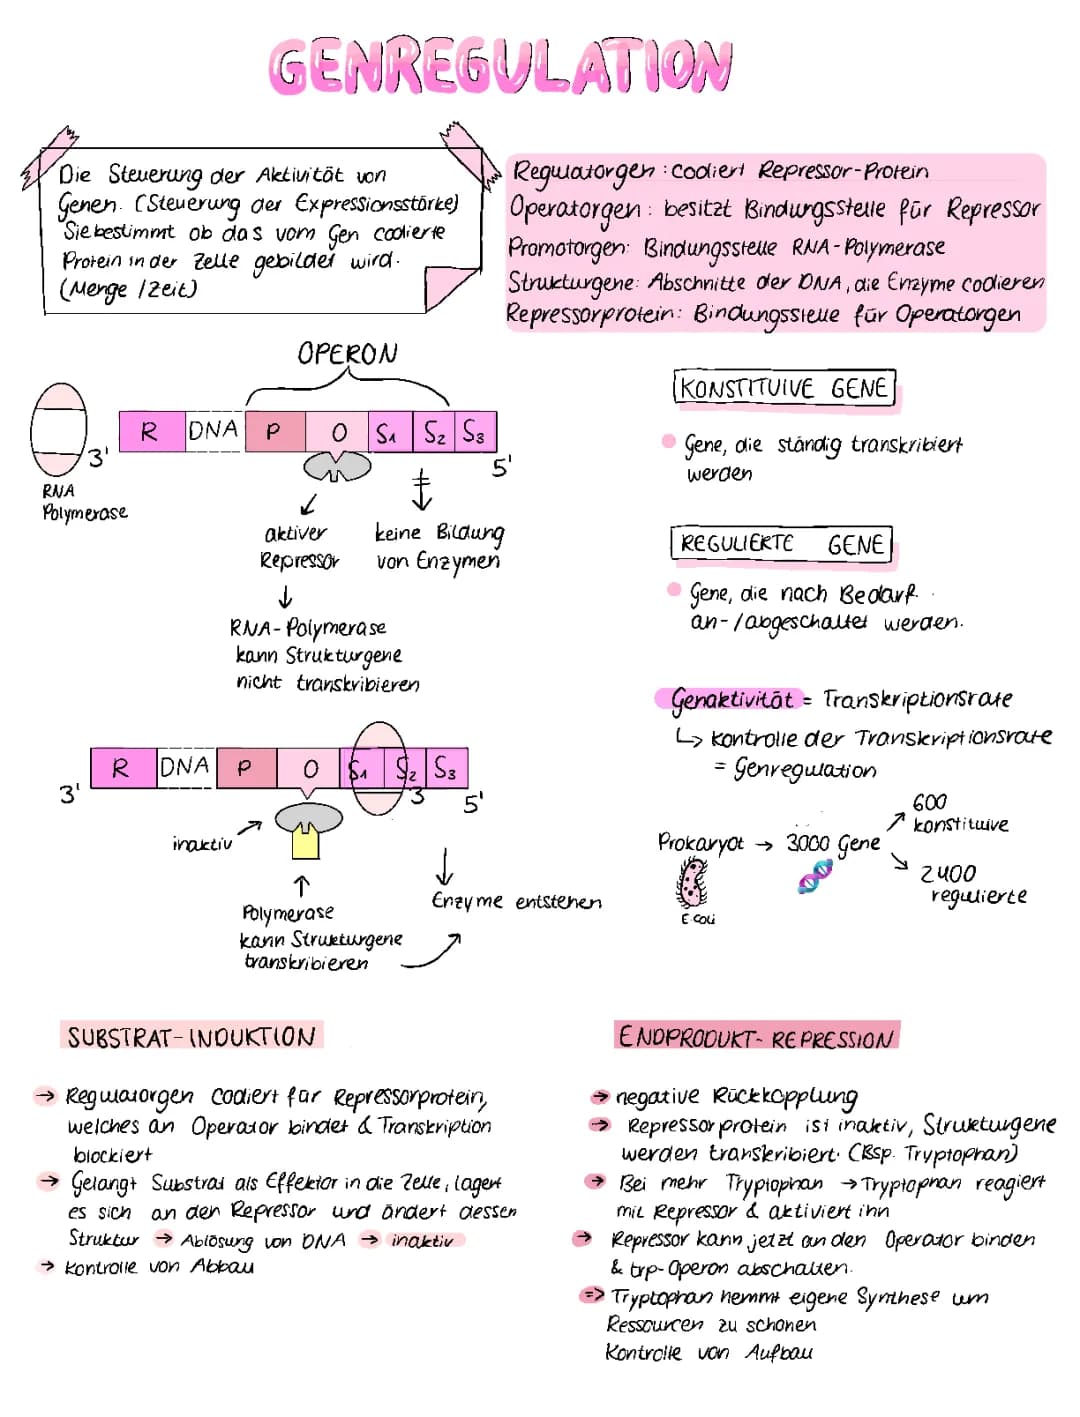 GENREGULATION
Die Steuerung der Aktivität von
Genen. (Steuerung der Expressionsstärke)
Sie bestimmt ob das vom Gen codierte
Protein in der Zelle gebildet wird.
(Menge / Zeit)
Regulatorgen : codiert Repressor-Protein
Operatorgen : besitzt Bindungsstelle für Repressor
Promotorgen: Bindungsstelle RNA-Polymerase
Strukturgene: Abschnitte der DNA, die Enzyme codieren
Repressorprotein: Bindungsstelle für Operatorgen
OPERON
R DNA P O S1 S2 S3
3'
5'
RNA
Polymerase
aktiver
Repressor
↓
RNA-Polymerase
kann Strukturgene
nicht transkribieren
keine Bildung
von Enzymen
KONSTITUIVE GENE
Gene, die ständig transkribiert
werden
REGULIERTE GENE
Gene, die nach Bedarf
an-/abgeschaltet werden.
Genaktivität = Transkriptionsrate
↳ kontrolle der Transkriptionsrate
= Genregulation
Prokaryot → 3000 Gene
600
konstituive
2400
regulierte
E.Coli
R DNA P O S1 S2 S3
3'
3
5'
inaktiv
↑
Polymerase
kann Strukturgene
transkribieren
↓
Enzyme entstehen
SUBSTRAT-INDUKTION
→ Regulatorgen codiert für Repressorprotein,
welches an Operator bindet & Transkription
blockiert
→ Gelangt Substrat als Effektor in die Zelle, lagert
es sich an den Repressor und ändert dessen
Struktur → Ablösung von DNA → inaktiv
→ Kontrolle von Abbau
ENDPRODUKT-REPRESSION
→ negative Rückkopplung
→ Repressorprotein ist inaktiv, Strukturgene
werden transkribiert. (Bsp. Tryptophan)
→ Bei mehr Tryptophan → Tryptophan reagiert
mit Repressor & aktiviert ihn
→ Repressor kann jetzt an den Operator binden
& trp-Operon abschalten.
=> Tryptophan hemmt eigene Synthese um
Ressourcen zu schonen
Kontrolle von Aufbau